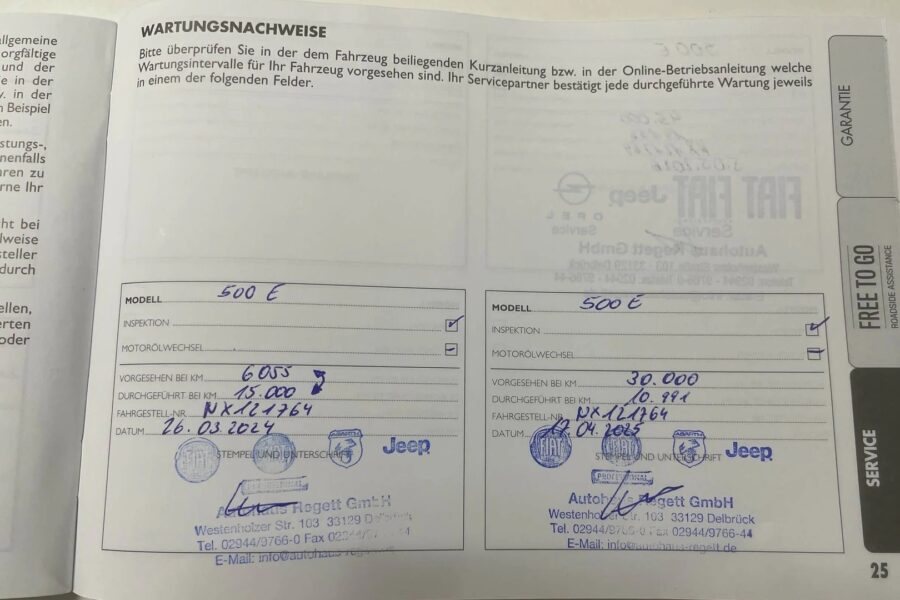 allgemeine
orgfältige
und der
e in der
v. in der
n Beispiel
en.
stungs-,
nenfalls
aren zu
rne Ihr
ht bei
lweise
steller
durch
ellen,
erten
oder
WARTUNGSNACHWEISE
Bitte überprüfen Sie in der dem Fahrzeug beiliegenden Kurzanleitung bzw. in der Online-Betriebsanleitung welche
Wartungsintervalle für Ihr Fahrzeug vorgesehen sind. Ihr Servicepartner bestätigt jede durchgeführte Wartung jeweils
in einem der folgenden Felder.
MODELL 500 E
INSPEKTION
MOTORÖLWECHSEL
VORGESEHEN BEI KM 6055
DURCHGEFÜHRT BEI KM 15.000
FAHRGESTELL-NR. NX121764
DATUM 26.03.2024
FIAT FIAT ABARTH Jeep
STEMPEL UND UNTERSCHRIFT
PROFESSIONAL
Autohaus Regett GmbH
Westenholzer Str. 103 33129 Delbrück
Tel. 02944/9766-0 Fax
E-Mail: info@autohaus-regett
MODELL 500 E
INSPEKTION
MOTORÖLWECHSEL
VORGESEHEN BEI KM 30.000
DURCHGEFÜHRT BEI KM 10.991
FAHRGESTELL-NR. NX121764
DATUM 17.04.2025
FIAT FIAT ABARTH Jeep
STEMPEL UND UNTERSCHRIFT
PROFESSIONAL
Autohaus Regett GmbH
Westenholzer Str. 103 33129 Delbrück
Tel. 02944/9766-0 Fax 02944/9766-44
E-Mail: info@autohaus-regett.de
GARANTIE
FREE TO GO
ROADSIDE ASSISTANCE
SERVICE
25